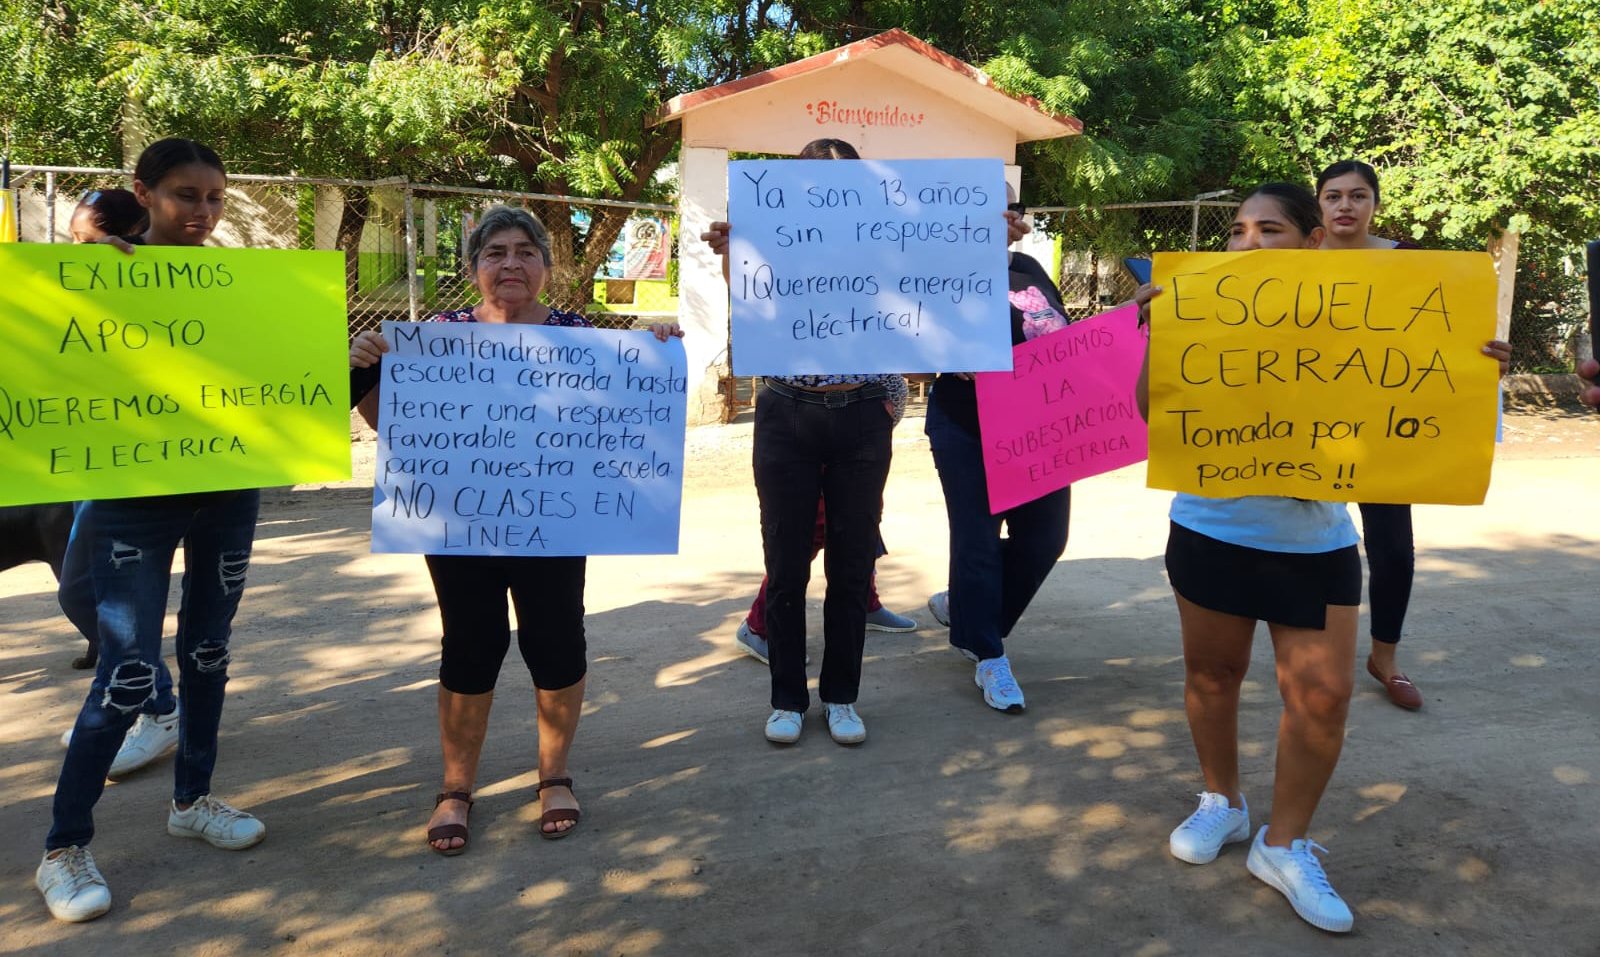 Bienvenidos
EXIGIMOS
APOYO
QUEREMOS ENERGÍA
ELECTRICA
Mantendremos la
escuela cerrada hasta
tener una respuesta
favorable concreta
para nuestra escuela.
NO CLASES EN
LÍNEA
Ya son 13 años
sin respuesta
¡Queremos energía
eléctrica!
EXIGIMOS
LA
SUBESTACIÓN
ELÉCTRICA
ESCUELA
CERRADA
Tomada por los
padres!!